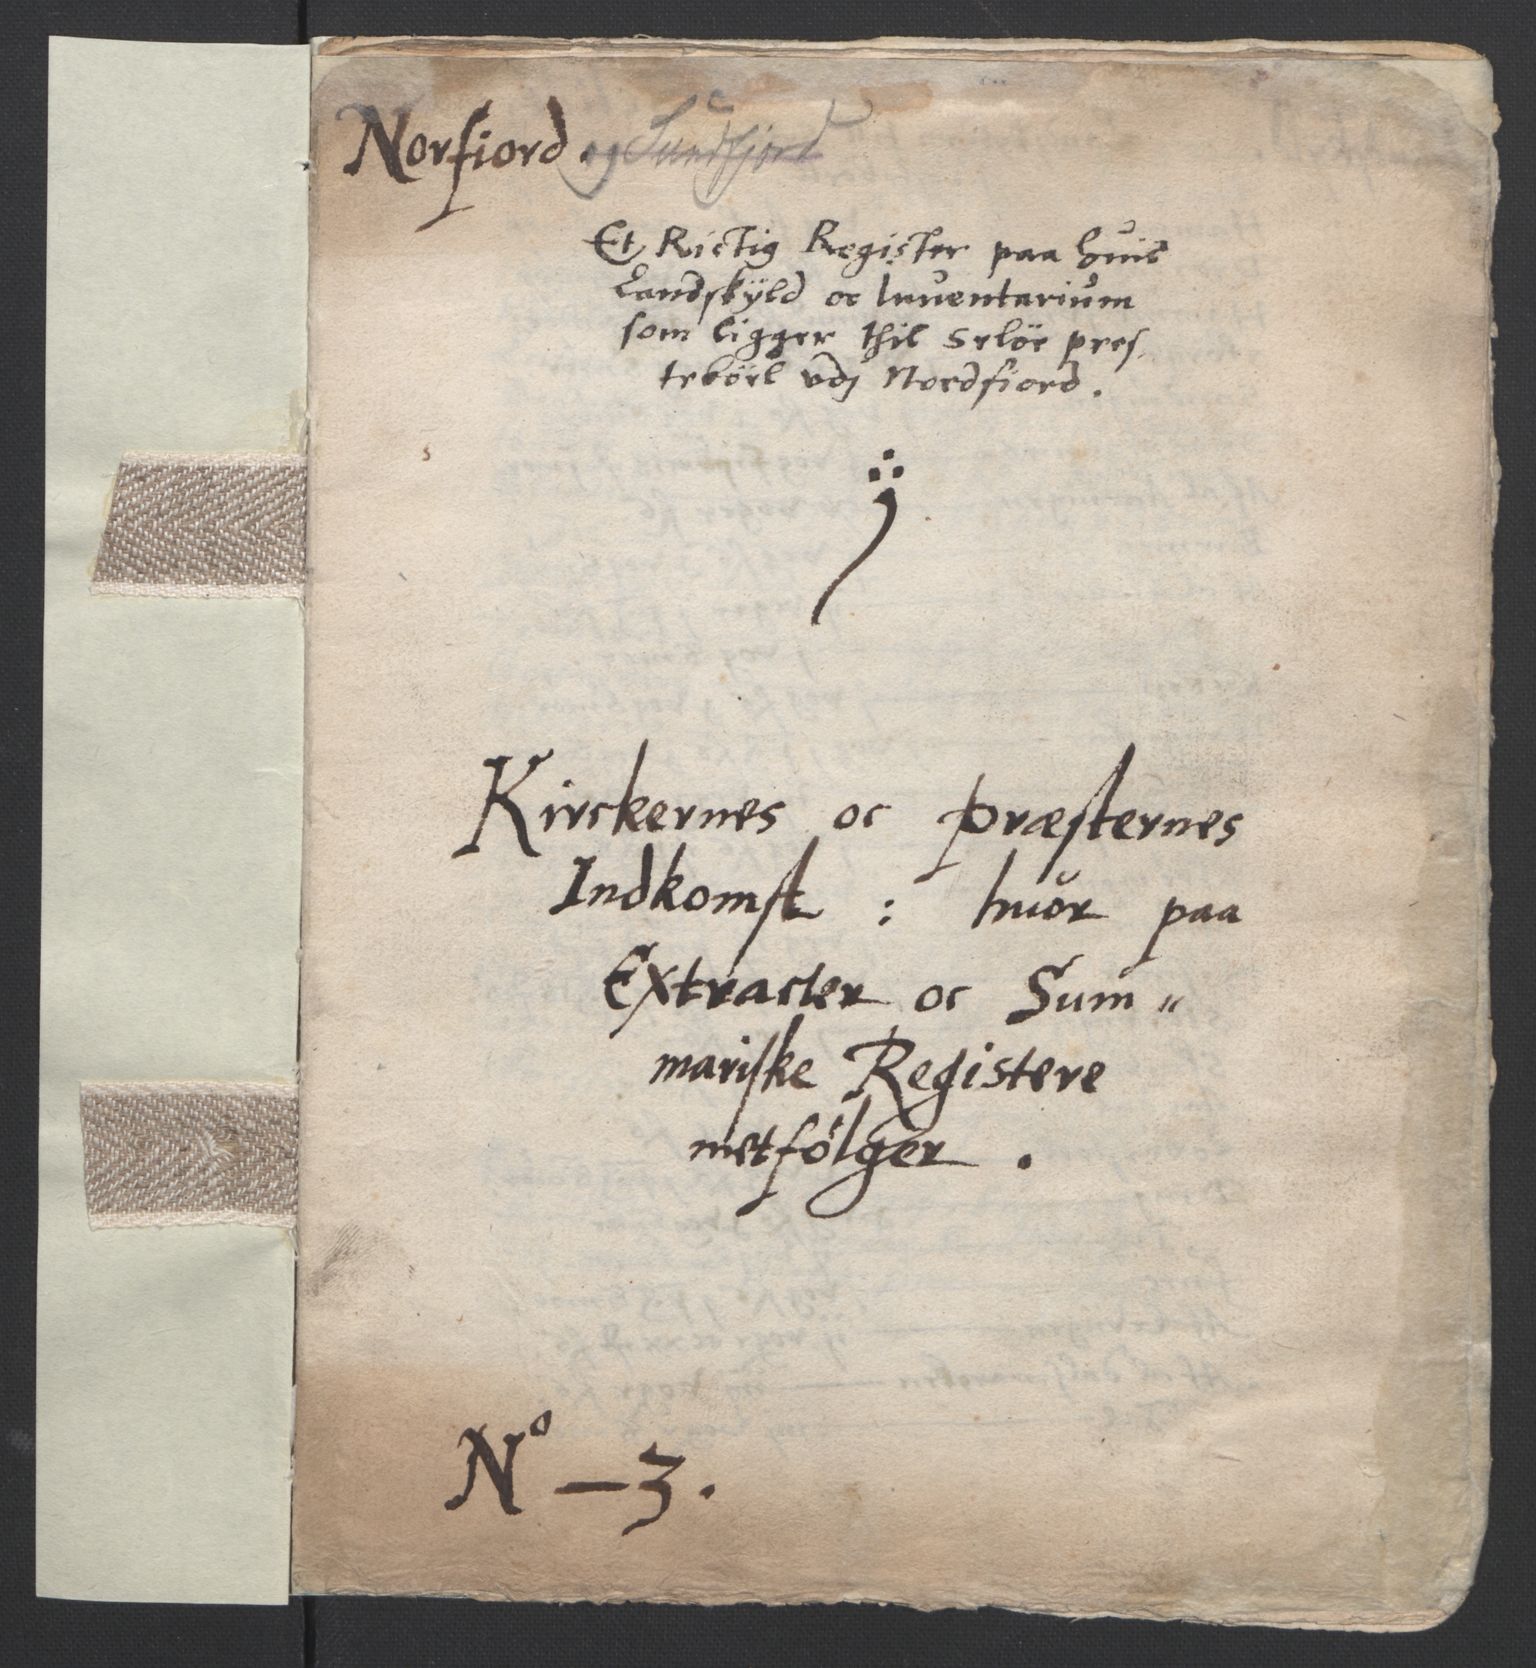 Norfiord. og Sundfjord
Et Rictig Register paa huis
Landskÿld oc Inuentarium
som ligger thil Selöe pres,
teböil vdj Nordfiord.
Kirckernes oc præsternes
Indkomst : huor paa
Extracter oc Sum„
mariske Registere
metfölger .
No — 3.